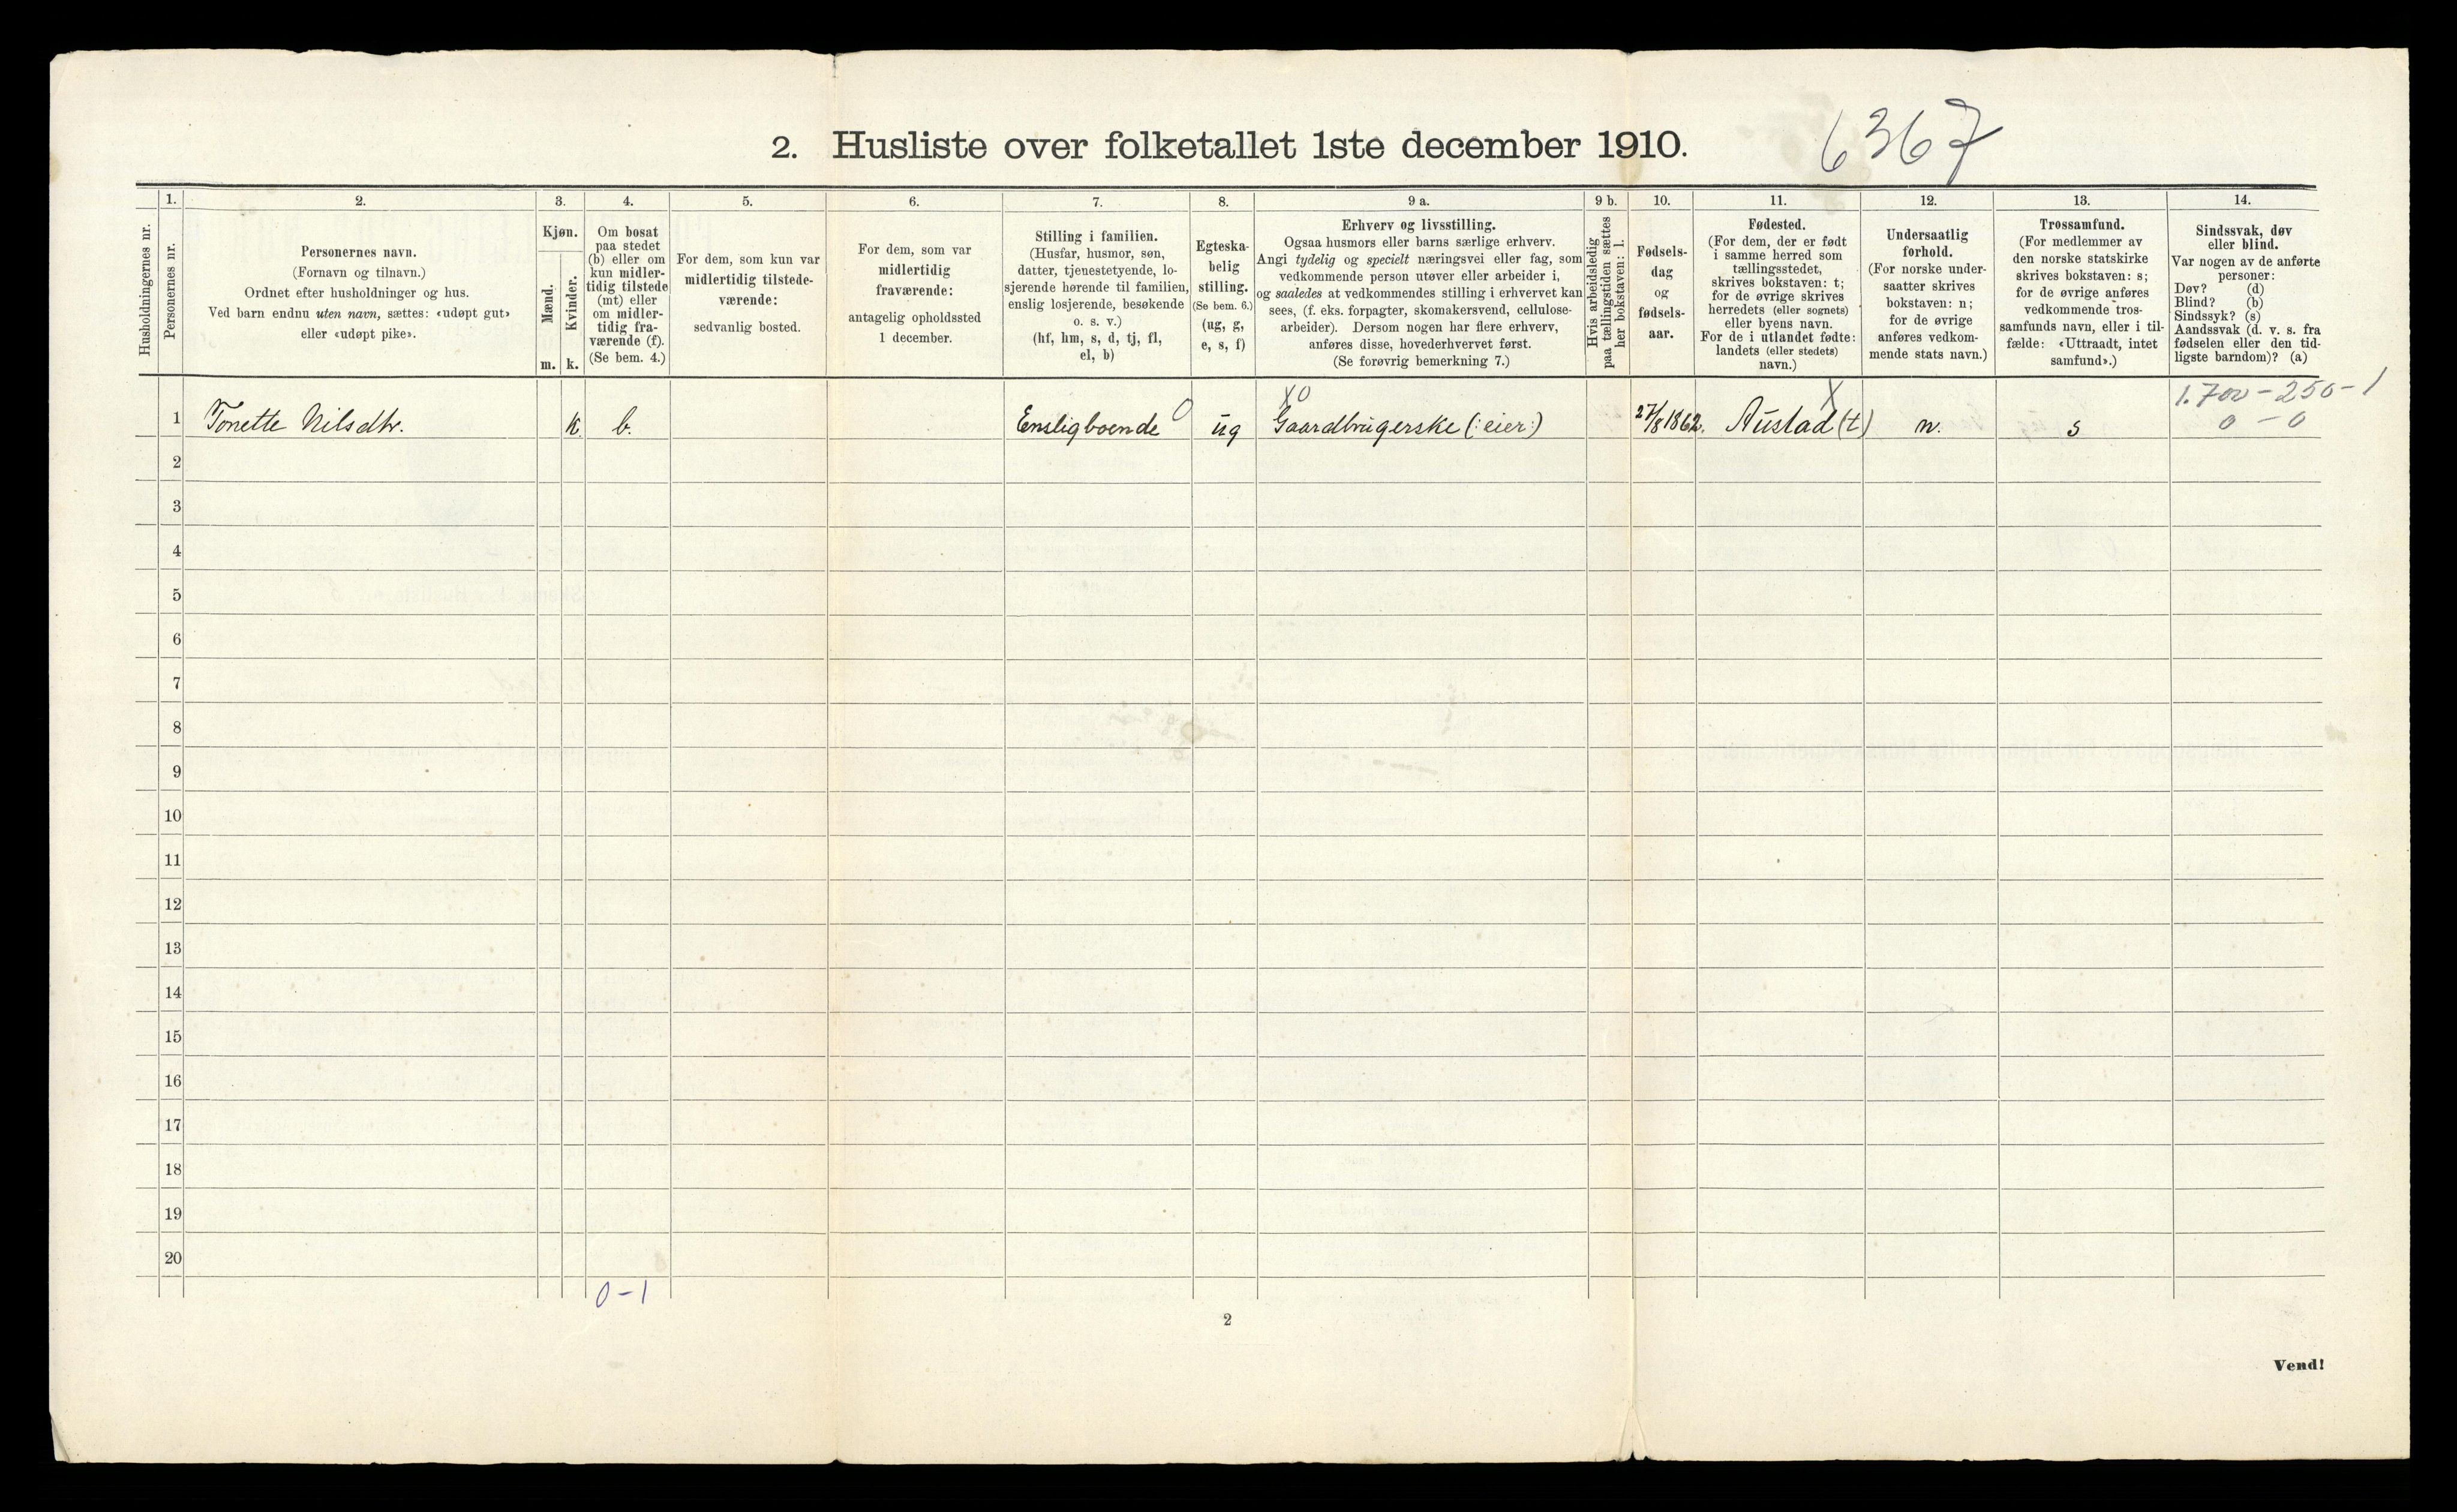 6367
2. Husliste over folketallet 1ste december 1910.
Husholdningernes nr.
1.
Personernes nr.
2.
Personernes navn.
(Fornavn og tilnavn.)
Ordnet efter husholdninger og hus.
Ved barn endnu uten navn, sættes: «udøpt gut»
eller «udøpt pike».
3.
Kjøn.
Mænd.
m.
Kvinder.
k.
4.
Om bosat
paa stedet
(b) eller om
kun midler-
tidig tilstede
(mt) eller
om midler-
tidig fra-
værende (f).
(Se bem. 4.)
5.
For dem, som kun var
midlertidig tilstede-
værende:
sedvanlig bosted.
6.
For dem, som var
midlertidig
fraværende:
antagelig opholdssted
1 december.
7.
Stilling i familien.
(Husfar, husmor, søn,
datter, tjenestetyende, lo-
sjerende hørende til familien,
enslig losjerende, besøkende
o. s. v.)
(hf, hm, s, d, tj, fl,
el, b)
8.
Egteska-
belig
stilling.
(Se bem. 6.)
(ug, g,
e, s, f)
9 a.
Erhverv og livsstilling.
Ogsaa husmors eller barns særlige erhverv.
Angi tydelig og specielt næringsvei eller fag, som
vedkommende person utøver eller arbeider i,
og saaledes at vedkommendes stilling i erhvervet kan
sees, (f. eks. forpagter, skomakersvend, cellulose-
arbeider). Dersom nogen har flere erhverv,
anføres disse, hovederhvervet først.
(Se forøvrig bemerkning 7.)
9 b.
Hvis arbeidsledig
paa tællingstiden sættes
her bokstaven: l.
10.
Fødsels-
dag
og
fødsels-
aar.
11.
Fødested.
(For dem, der er født
i samme herred som
tællingsstedet,
skrives bokstaven: t;
for de øvrige skrives
herredets (eller sognets)
eller byens navn.
For de i utlandet fødte:
landets (eller stedets)
navn.)
12.
Undersaatlig
forhold.
(For norske under-
saatter skrives
bokstaven: n;
for de øvrige
anføres vedkom-
mende stats navn.)
13.
Trossamfund.
(For medlemmer av
den norske statskirke
skrives bokstaven: s;
for de øvrige anføres
vedkommende tros-
samfunds navn, eller i til-
fælde: «Uttraadt, intet
samfund».)
14.
Sindssvak, døv
eller blind.
Var nogen av de anførte
personer:
Døv? (d)
Blind? (b)
Sindssyk? (s)
Aandssvak (d. v. s. fra
fødselen eller den tid-
ligste barndom)? (a)
X0 X 1.700-250-1
1 Tonette Nilsdtr. k. b. Ensligboende 0 ug Gaardbrugerske (: eier :) 27/8 1862. Austad (t) n. s 0 - 0
2
3
4
5
6
7
8
9
10
11
12
13
14
15
16
17
18
19
20
0-1
2
Vend!